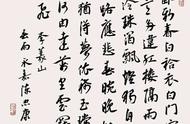 新春白袷衣白門
落意多違紅樓隔雨
冷珠箔飄燈獨自歸
路應悲春晼晚
猶得夢依稀玉
何由達萬里雲羅
飛 李義山
永嘉陳